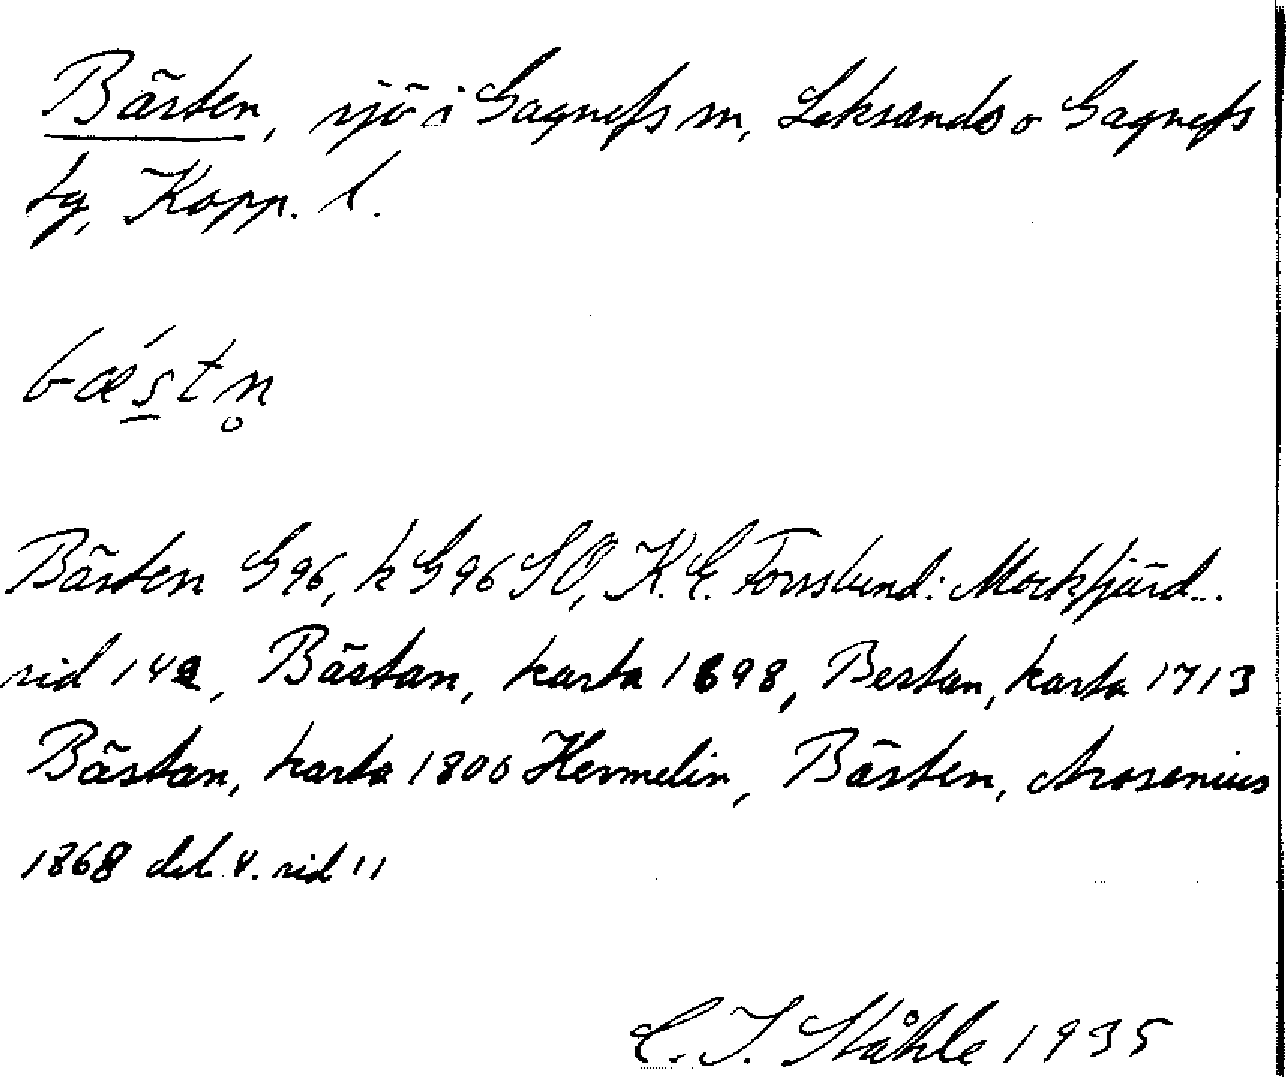 Bästen, sjö i Gagnefs sn, Leksands o Gagnefs
tg, Kopp. l.
bæ´s̲tn̥
Bästen G96, k G96 SO, K.E. Forsslund: Mockfjärd..
sid 142, Bästan, karta 1698, Bestan, karta 1713
Bästan, karta 1800 Hermelin, Bästen, Arosenius
1868 del. V. sid 11
C. I. Ståhle 1935